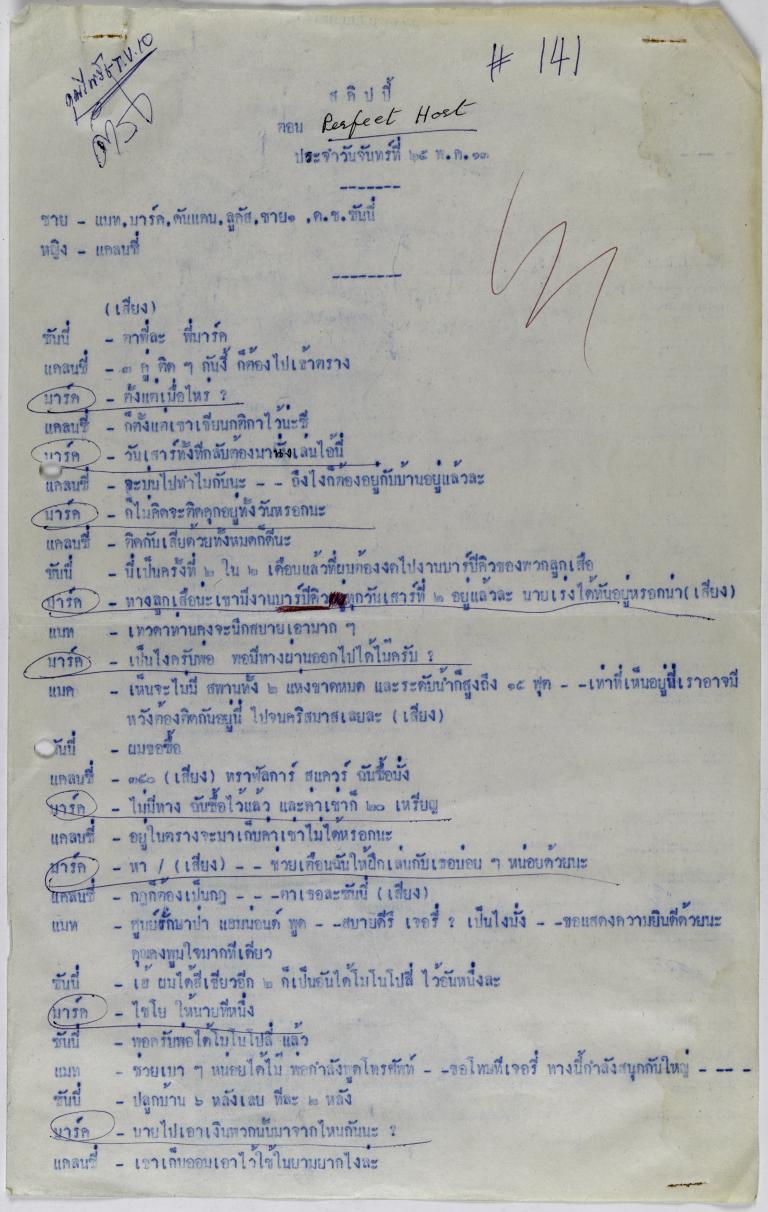 # 141
T.V.10
สคิปปี้
ตอน Perfect Host
ประจำวันจันทร์ที่ ๒๕ พ.ค.๑๓
-------
ชาย - แมท,มาร์ค,ดันแคน,ลูคัส,ชาย๑ ,ด.ช.ซันนี่
หญิง - แคลนซี่
--------
(เสียง)
ซันนี่ - ตาพี่ละ พี่มาร์ค
แคลนซี่ - ๓ คู่ ติด ๆ กันงี้ ก็ต้องไปเข้าตราง
มาร์ค - ตั้งแต่เมื่อไหร่ ?
แคลนซี่ - ก็ตั้งแต่เขาเขียนกติกาไว้น่ะซี
มาร์ค - วันเสาร์ทั้งทีกลับต้องมานั่งเล่นไอ้นี่
แคลนซี่ - จะบ่นไปทำไมกันนะ - - ถึงไงก็ต้องอยู่กับบ้านอยู่แล้วละ
มาร์ค - ก็ไม่คิดจะติดคุกอยู่ทั้งวันหรอกนะ
แคลนซี่ - ติดกับเสียด้วยทั้งหมดก็ดีนะ
ซันนี่ - นี่เป็นครั้งที่ ๒ ใน ๒ เดือนแล้วที่ผมต้องงดไปงานบาร์บีคิวของพวกลูกเสือ
มาร์ค - ทางลูกเสือน่ะเขามีงานบาร์บีคิวทุกวันเสาร์ที่ ๒ อยู่แล้วละ นายเร่งได้ทันอยู่หรอกน่า(เสียง)
แมท - เทวดาท่านคงจะนึกสบายเอามาก ๆ
มาร์ค - เป็นไงครับพ่อ พอมีทางผ่านออกไปได้ไม๊ครับ ?
แมค - เห็นจะไม่มี สพานทั้ง ๒ แห่งขาดหมด และระดับน้ำก็สูงถึง ๑๕ ฟุต - -เท่าที่เห็นอยู่นี่เราอาจมี
หวังต้องติดกันอยู่นี่ ไปจนคริสมาสเลยละ (เสียง)
ซันนี่ - ผมขอซื้อ
แคลนซี่ - ๓๕๐ (เสียง) ทราฟัลการ์ สแควร์ ฉันซื้อมั่ง
มาร์ค - ไม่มีทาง ฉันซื้อไว้แล้ว และค่าเช่าก็ ๒๐ เหรียญ
แคลนซี่ - อยู่ในตรางจะมาเก็บค่าเช่าไม่ได้หรอกนะ
มาร์ค - หา / (เสียง) - - ช่วยเตือนฉันให้ฝึกเล่นกับเธอบ่อย ๆ หน่อยด้วยนะ
แคลนซี่ - กฎก็ต้องเป็นกฎ - - -ตาเธอละซันนี่ (เสียง)
แมท - ศูนย์รักษาป่า แฮมมอนด์ พูด - -สบายดีรึ เจอรี่ ? เป็นไงมั่ง - -ขอแสดงความยินดีด้วยนะ
คุณคงพูมใจมากทีเดียว
ซันนี่ - เฮ้ ผมได้สีเขียวอีก ๒ ก็เป็นอันได้โมโนโปลี่ ไว้อันหนึ่งละ
มาร์ค - ไชโย ให้นายทีหนึ่ง
ซันนี่ - พ่อครับพ่อได้โมโนโปลี่ แล้ว
แมท - ช่วยเบา ๆ หน่อยได้ไม๊ พ่อกำลังพูดโทรศัพท์ - -ขอโทษทีเจอรี่ ทางนี้กำลังสนุกกันใหญ่ - -- -
ซันนี่ - ปลูกบ้าน ๖ หลังเลย ทีละ ๒ หลัง
มาร์ค - นายไปเอาเงินพวกนั้นมาจากไหนกันนะ ?
แคลนซี่ - เขาเก็บออมเอาไว้ใช้ในยามยากไงล่ะ